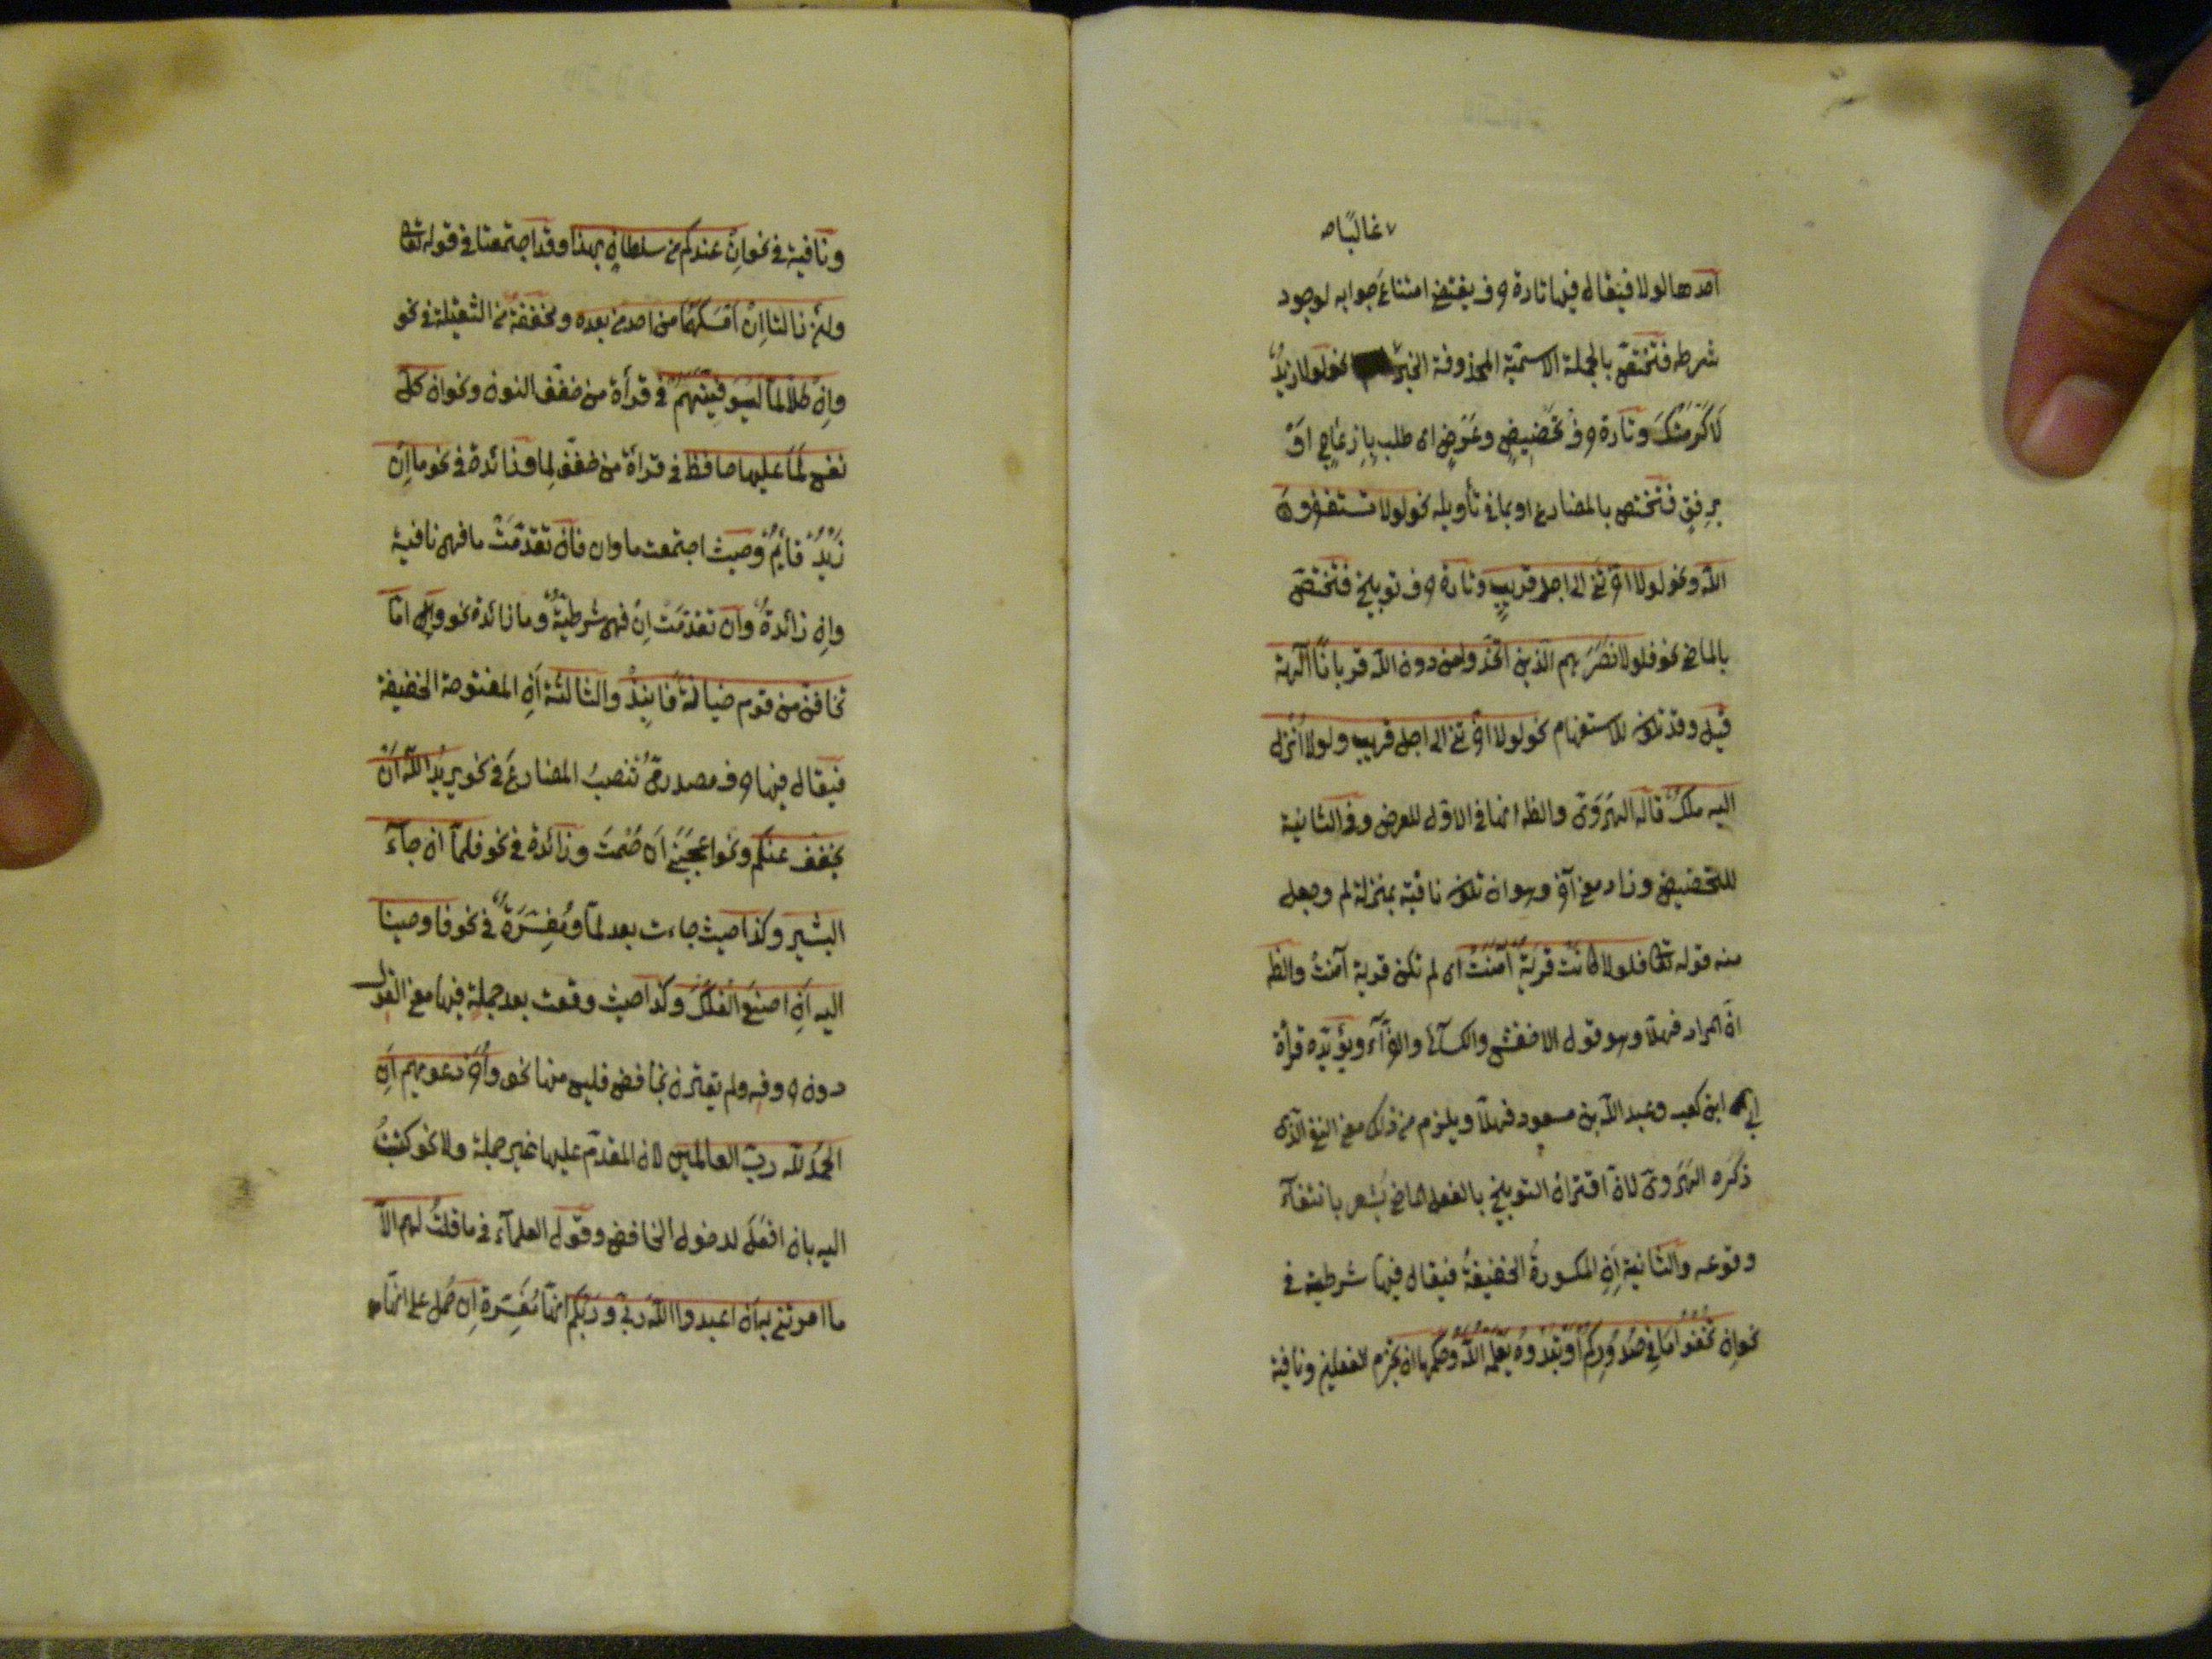 غالبًا صح
احدها لولا فيقال فيها تارة حرف يقتضي امتناعَ جوابه لوجود
شرطه فتختصّ بالجملة الاسميّة المحذوفة الخبر نحو لولا زيدٌ
لَاَكْرَمْتُكَ وتارة حرفُ تحْضِيضٍ وعَرْضٍ اى طلبٍ بِاِزعاجٍ اَوْ
بِرِفقٍ فتختص بالمضارع او بما فى تأويله نحو لولا تستغفرون
اللّه ونحو لولا اخّرتنى الى اجل قريبٍ وتارة حرف توبيخ فتختصّ
بالماضى نحو فلولا نَصَرَهم الّذين اتّخذوا من دون اللّه قربانًا آلهة
قيل وقد تكون للاستفهام نحو لولا اخّرتنى الى اجل قريب ولولا اُنْزل
اليه ملكٌ قاله الهَرَوىّ والظ انها فى الاول للعرض وفى الثانية
للتحضيض وزاد معنى آخر وهو ان تكون نافية بمنزلة لم وجعل
منه قوله تعا فلولا كانَتْ قريَةٌ آمَنَتْ اى لم تكن قرية آمنتْ والظ
انّ المراد فهلّا وهو قول الاخفش والكسآئى والفرّآء ويؤيّده قرأة
اُبىّ ابن كعب وعبد اللّه بن مسعود فهلّا ويلزم من ذلك معنى النفى الّذى
ذكَره الهَرَوىّ لانّ اقتران التوبيخ بالفعل الماضى يُشعر بانتفآء
وقوعه والثانية اِنِ المكسورةُ الخفيفةُ فيقال فيها شرطية فى
نحو اِن تُخْفُوا مَا فِى صُدُوْرِكُمْ اَوْ تُبْدُوْهُ يَعْلَمْهُ اللّهُ وحكمها ان تجزم الفعلين ونافية
ونافية فى نحو اِنْ عندكم من سلطانٍ بهذا وقد اجتمعتا فى قوله تعا
ولئن زالتا اِنْ اَمْسَكَهُمَا من احد من بعده ومخففة من الثقيلة فى نحو
واِنْ كلًّا لَمَا لَيُوَفِّيَنَّهُمْ فى قرأة من خفّف النون ونحو ان كلّ
نفس لَمَا عليها حافظ فى قرأة من خفّف لما وزائدة فى نحو ما اِنْ
زَيْدٌ قائمٌ وحيث اجتمعت ما وان فاِنْ تقدّمَتْ ما فهى نافية
واِن زائدةٌ واِن تقدّمَت اِنْ فهى شرطيّةٌ وما زائدة نحو واِمّا
تخافنّ من قوم خيانةً فانبِذْ والثالثة اَنِ المفتوحة الخفيفة
فيقال فيها حرف مصدرىّ تنصبُ المضارعَ فى نحو يريدُ اللّه اَنْ
يخفف عنكم ونحو اعجَبَنى اَن صُمْتَ وزائدة فى نحو فلمّا ان جآءَ
البشير وكذا حيث جاءت بعد لمّا ومُفَسِّرَةٌ فى نحو فاوحينا
اليه اَنِ اصنَعِ الفُلْكَ وكذا حيث وقعت بعد جملة فيها معنى القول
دون حروفه ولم يقترن بخافض فليس منها نحو وآخرُ دعويهم اَنِ
الحمدُ للّه ربّ العالمين لان المقدّم عليها غير جملة ولا نحو كتبْتُ
اليه بان افعَلْ لدخول الخافض وقول العلمآء فى ما قلتُ لهم الّا
ما امرتنى به اَن اعبدوا اللّه ربّى وربّكم انّها مُفَسِّرة اِن حُمل على انّها